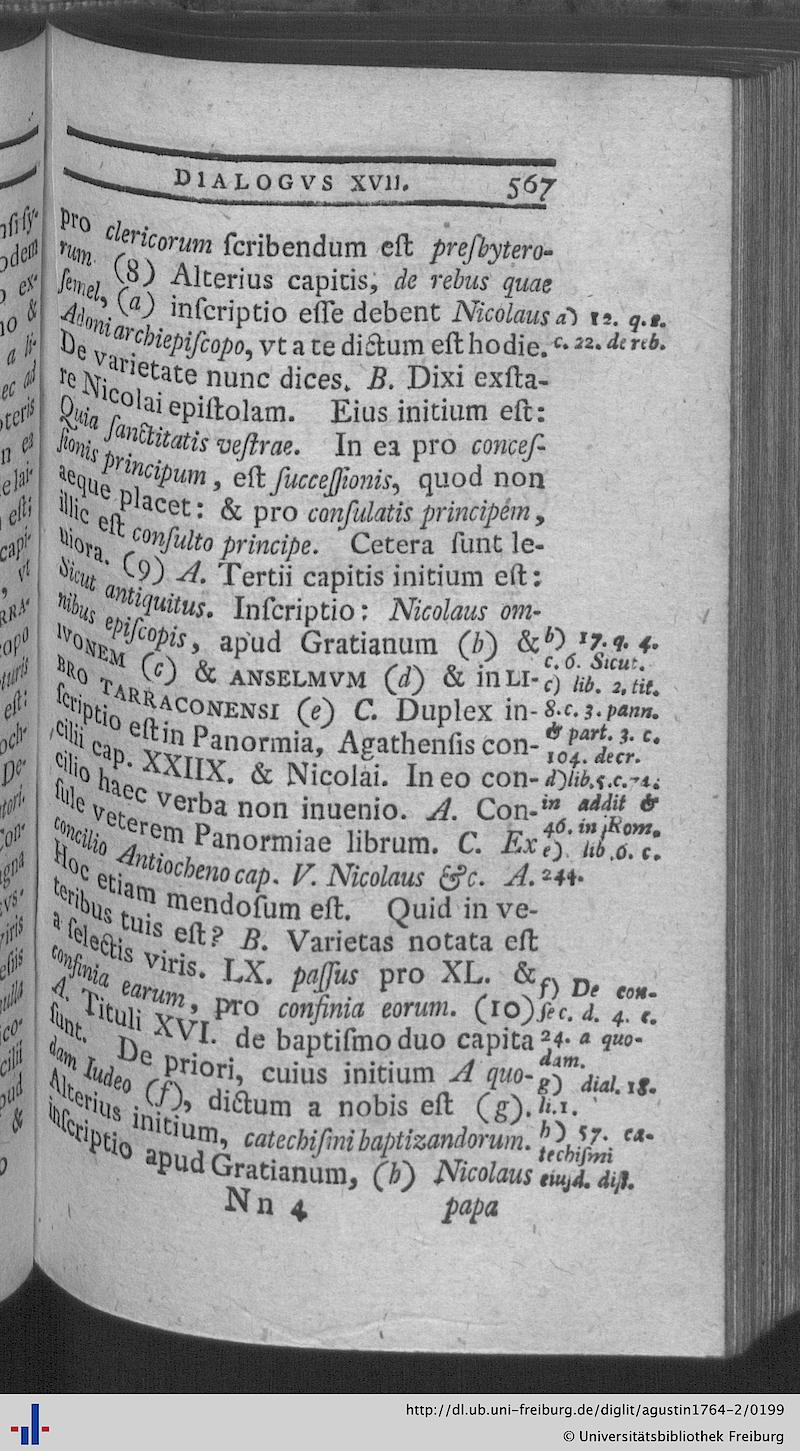 DIALOGVS XVII. 567
pro clericorum ſcribendum eſt preſbytero-
rum. (8) Alterius capitis, de rebus quae
ſemel, (a) inſcriptio eſſe debent Nicolaus
Adoni archiepiſcopo, vt a te dictum eſt hodie.
De varietate nunc dices. B. Dixi exſta-
re Nicolai epiſtolam. Eius initium eſt:
Quia ſanctitatis veſtrae. In ea pro conceſ-
ſionis principum, eſt ſucceſſionis, quod non
aeque placet: & pro conſulatis principem,
illic eſt conſulto principe. Cetera ſunt le-
uiora. (9) A. Tertii capitis initium eſt:
Sicut antiquitus. Inſcriptio: Nicolaus om-
nibus epiſcopis, apud Gratianum (b) &
IVONEM (c) & ANSELMVM (d) & in LI-
BRO TARRACONENSI (e) C. Duplex in-
ſcriptio eſt in Panormia, Agathenſis con-
cilii cap. XXIIX. & Nicolai. In eo con-
cilio haec verba non inuenio. A. Con-
ſule veterem Panormiae librum. C. Ex
concilio Antiocheno cap. V. Nicolaus &c. A.
Hoc etiam mendoſum eſt. Quid in ve-
teribus tuis eſt? B. Varietas notata eſt
a ſelectis viris. LX. paſſus pro XL. &
confinia earum, pro confinia eorum. (10)
A. Tituli XVI. de baptiſmo duo capita
ſunt. De priori, cuius initium A quo-
dam Iudeo (f), dictum a nobis eſt (g).
Alterius initium, catechiſmi baptizandorum.
inſcriptio apud Gratianum, (h) Nicolaus
Nn 4 papa
a) 12. q. 2.
c. 22. de reb.
b) 17. q. 4.
c. 6. Sicut.
c) lib. 2. tit.
8. c. 3. pann.
& part. 3. c.
104. decr.
d) lib. 5. c.
in addit &
46. in Rom.
e) lib. 6. c.
244.
f) De con-
ſec. d. 4. c.
24. a quo-
dam.
g) dial. 18.
li. 1.
h) 57. ca-
techiſmi
eiuſd. diſt.
http://dl.ub.uni-freiburg.de/diglit/agustin1764-2/0199
© Universitätsbibliothek Freiburg